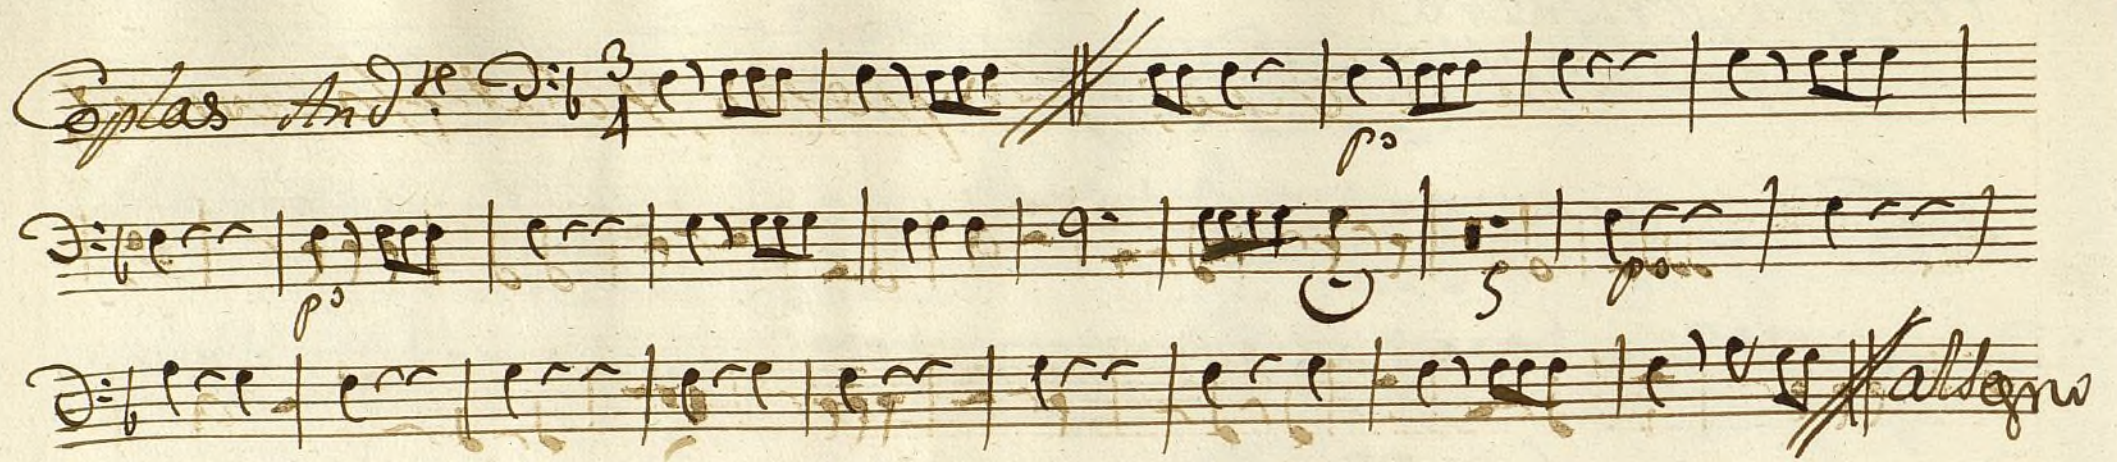 Coplas And.te 3/4
po
po 5 po
al segno